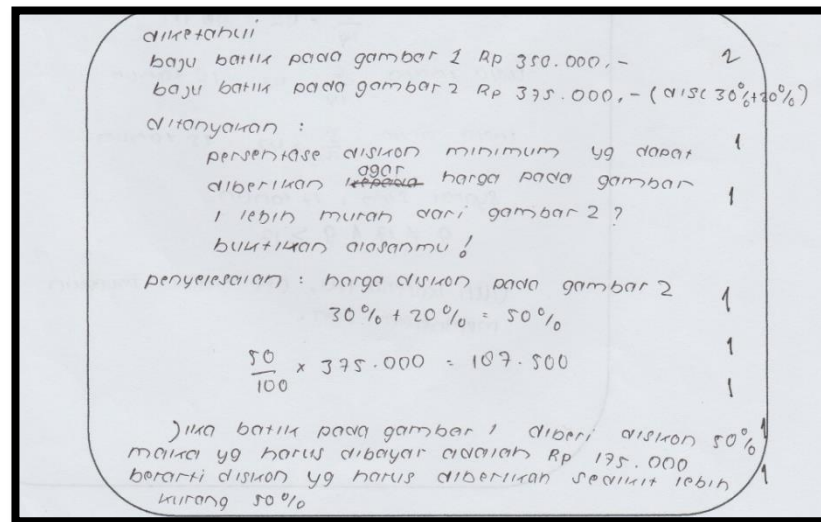 diketahui
baju batik pada gambar 1 Rp 350.000,- 2
baju batik pada gambar 2 Rp 375.000,- (disc 30%+20%)
ditanyakan :
persentase diskon minimum yg dapat 1
diberikan kepada agar harga pada gambar 1
1 lebih murah dari gambar 2 ?
buktikan alasanmu !
penyelesaian : harga diskon pada gambar 2 1
30% + 20% = 50%
50/100 x 375.000 = 187.500 1
1
Jika batik pada gambar 1 diberi diskon 50% 1
maka yg harus dibayar adalah Rp 175.000
berarti diskon yg harus diberikan sedikit lebih 1
kurang 50%